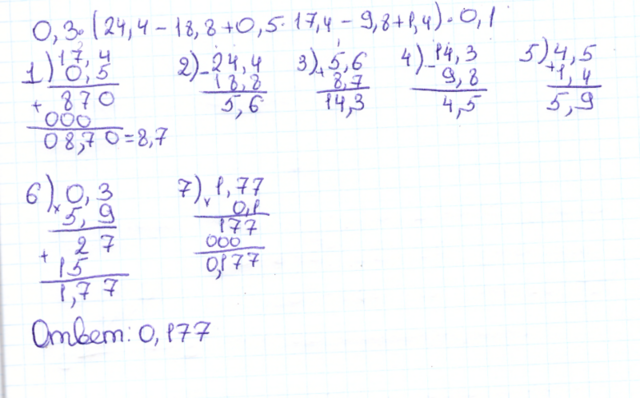 0,3·(24,4-18,8+0,5·17,4-9,8+1,4)·0,1
1) 17,4 2) -24,4 3) +5,6 4) -14,3 5) 4,5
0,5 18,8 8,7 9,8 +1,4
+ 870 5,6 14,3 4,5 5,9
000
08,70=8,7
6) × 0,3 7) × 1,77
5,9 0,1
+ 27 177
15 000
1,77 0,177
Ответ: 0,177